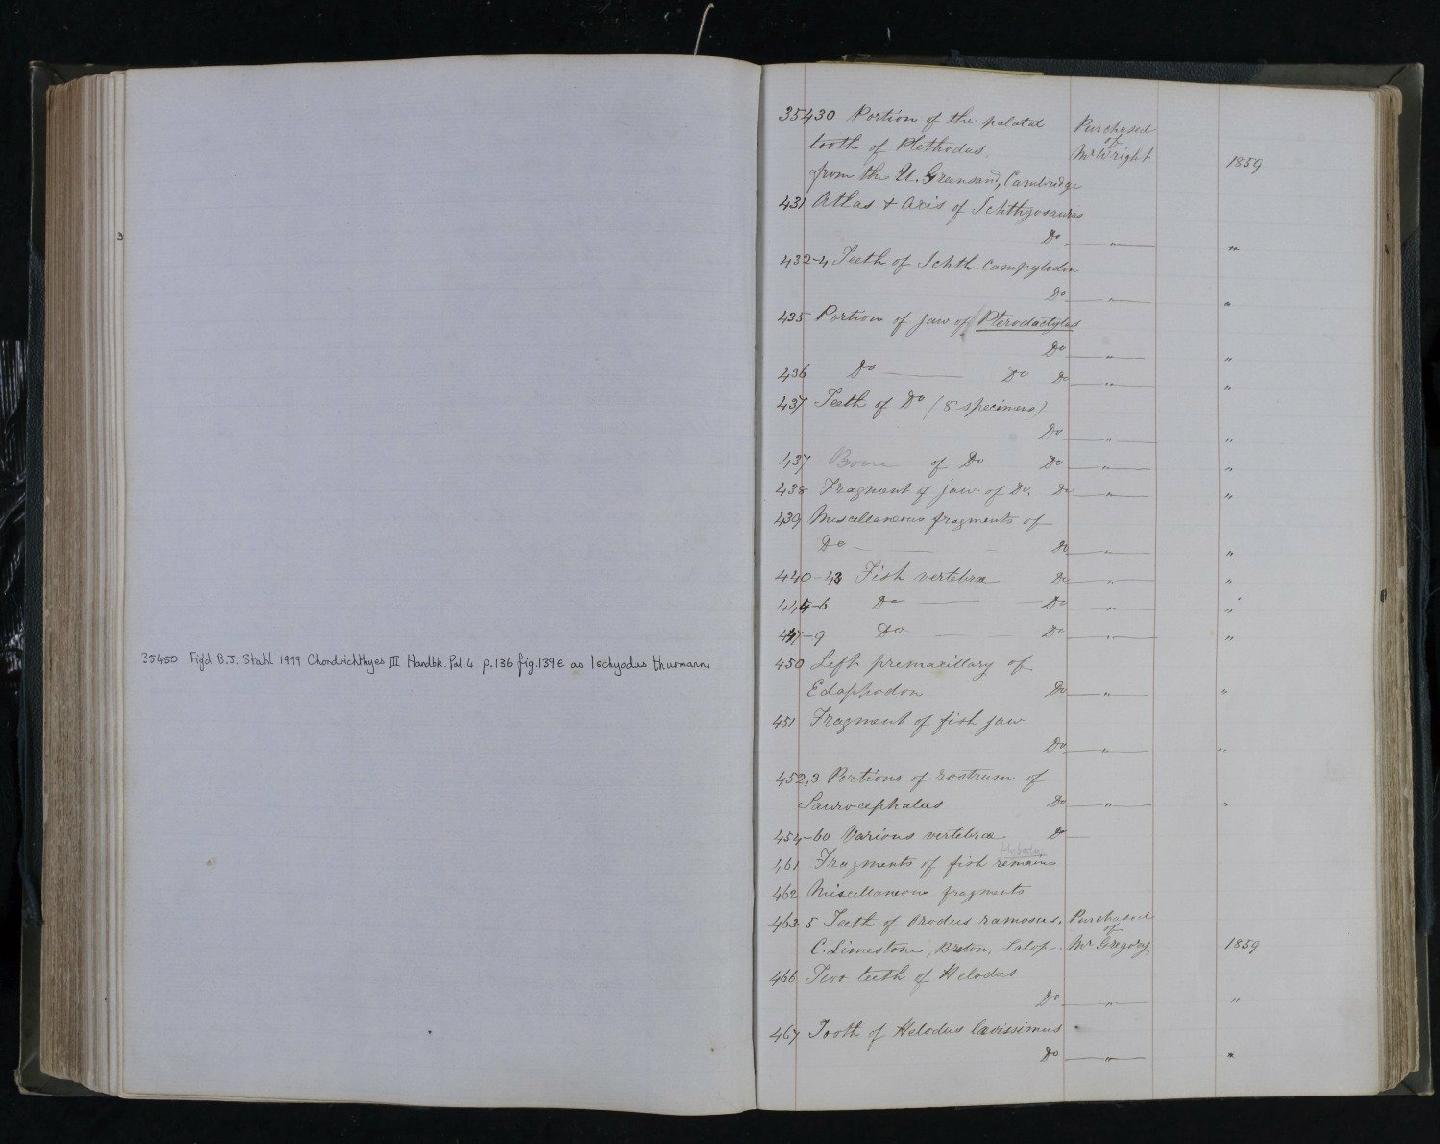 3
35450 Fig'd B.J. Stahl 1999 Chondrichthyes III Handbk. Pal. 4 p.136 fig.139E as Ischyodus thurmanni
35430 Portion of the palatal Purchased
tooth of Plethodus, of
from the U. Greensand, Cambridge Mr Wright 1859
431 Atlas & axis of Ichthyosaurus
Do. — " — "
432-4 Teeth of Ichth. campylodon
Do — " — "
435 Portion of jaw of Pterodactylus
Do — " — "
436 Do — Do Do — " — "
437 Teeth of Do (8 specimens)
Do — " — "
437 Bone of Do Do — " — "
438 Fragment of jaw of Do. Do — " — "
439 Miscellaneous fragments of
Do — Do — " — "
440-43 Fish vertebræ Do — " — "
444-6 Do — Do — " — "
447-9 Do — Do — " — "
450 Left premaxillary of
Edaphodon Do — " — "
451 Fragment of fish jaw
Do — " — "
452,3 Portions of rostrum of
Saurocephalus Do — " — "
454-60 Various vertebræ Do —
461 Fragments of fish remains
462 Miscellaneous fragments
463.5 Teeth of Orodus ramosus. Purchased
of
C. Limestone, Salop. Mr Gregory 1859
466 Two teeth of Helodus
Do — " — "
467 Tooth of Helodus lævissimus
Do — " — "